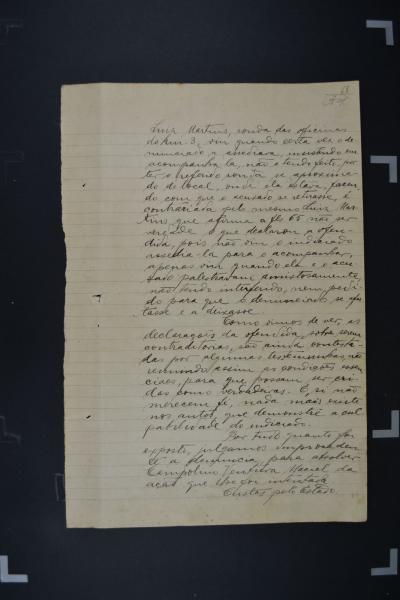 68
Luiz Martins, ronda das oficinas
do Km. 3, viu quando esta vez o de-
nunciado a assediava, insistindo em
acompanha-la, não o tendo feito, por
ter o referido ronda se aproxima-
do do local, onde ela estava, fazen-
do com que o acusado se retirasse, é
contrariada pelo mesmo Luiz Mar-
tins, que afirma a fls 65 não ser
verdade o que declarou a ofen-
dida, pois não viu o indiciado
assedia-la para o acompanhar,
apenas viu quando ela e o acu-
sado palestravam amistosamente,
não tendo interferido, nem pedi-
do para que o denunciado se afas-
tasse e a deixasse.
Como vimos de ver, as
declarações da ofendida, sobre serem
contraditorias, são ainda contesta-
das por algumas testemunhas, não
reunindo assim as condições essen-
ciais, para que possam ser cri-
das como verdadeiras. E, si não
merecem fé, nada mais existe
nos autos, que demonstre a cul-
pabilidade do indiciado.
Por tudo quanto foi
exposto, julgamos improceden-
te a denuncia, para absolver
Campolino Ventura Maciel da
ação que lhe foi intentada
Custas pelo Estado.